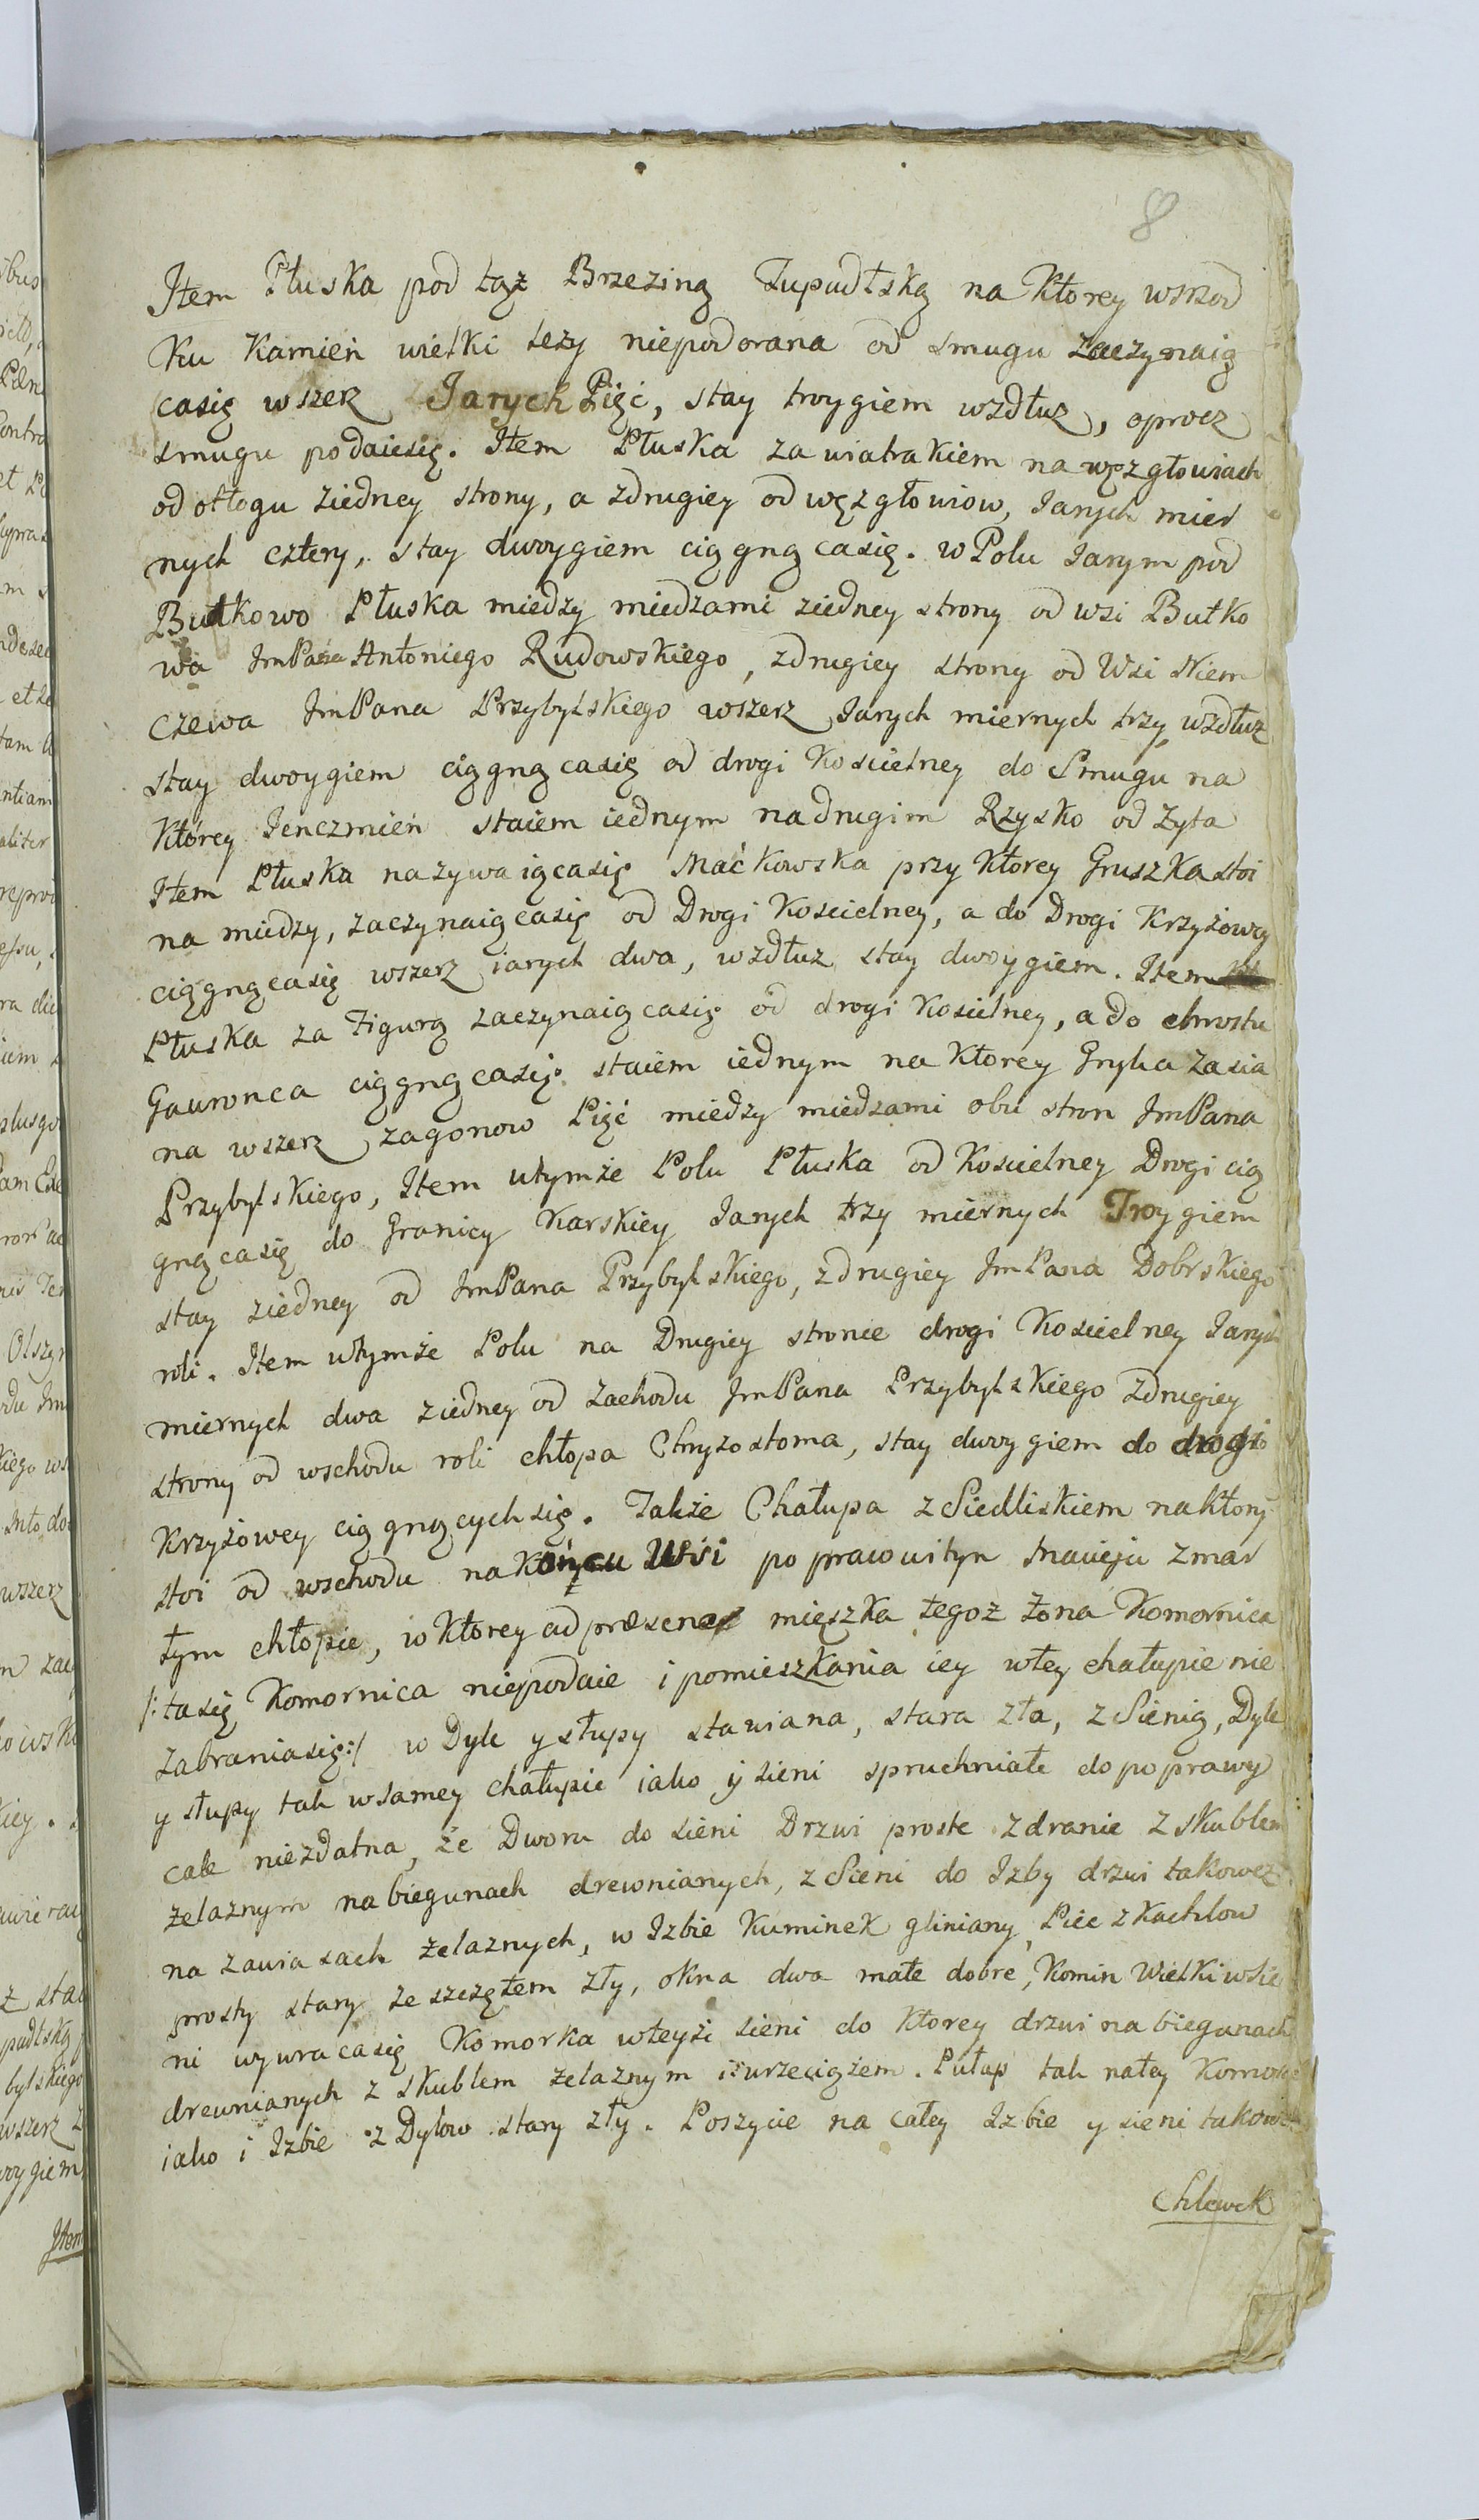 8
Item Płuska pod tąż Brzeziną Tupadłską na Ktorey wsrzod
Ku Kamień wielki leży niepodorana od smugu zaczynaią
casię wszerz Jarych Pięć, stay troygiem wzdłuz, oprocz
smugu podaiesię. Item Płuska za wiatrakiem na węzgłowiach
od otłogu ziedney strony, a zdrugiey od węzgłowiow, Jarych mier
nych cztery, stay dwoygiem ciągnącasię. w Polu Jarym pod
Butkowo Płuska miedzy miedzami ziedney strony od wsi Butko
wa JmPana Antoniego Rudowskiego, zdrugiey strony od Wsi Niem
czewa JmPana Przybylskiego wszerz Jarych miernych trzy, wzdłuz
stay dwoygiem ciągnącasię od drogi Koscielney do Smugu na
Ktorey Jenczmień staiem iednym nadrugim Rzysko od Zyta
Item Płuska nazywaiącasię Maćkowska przy Ktorey Gruszka stoi
na miedzy, zaczynaiącasię od Drogi Koscielney, a do Drogi Krzyżowey
ciągnącasię wszerz iarych dwa, wzdłuz stay dwoygiem. Item
Płuska za Figurą zaczynaiącasię od drogi Koscielney, a do chrostu
Gawronca ciągnącasię staiem iednym na Ktorey Gryka zasia
na wszerz zagonow Pięć miedzy miedzami obu stron JmPana
Przybylskiego, Item wtymże Polu Płuska od Koscielney Drogi cią
gnącasię do Granicy Karskiey Jarych trzy miernych Troygiem
stay ziedney od JmPana Przybylskiego, zdrugiey JmPana Dobrskiego
roli. Item wtymże Polu na Drugiey stronie drogi Koscielney Jarych
miernych dwa ziedney od Zachodu JmPana Przybylskiego zdrugiey
strony od wschodu roli chłopa Chryzostoma, stay dwoygiem do drogi
Krzyżowey ciągnącychsię. Także Chałupa z Siedliskiem naktory
stoi od wschodu nakońcu Wsi po prawowitym Macieju zmar
łym chłopie, w Ktorey ad præsens mięszka tegoż żona Komornica
/: tasię Komornica niepodaie i pomieszkania iey wtey chałupie nie
zabraniasię :/ w Dyle y słupy stawiana, stara zła, z Sienią, Dyle
y słupy tak wsamey chałupie iako y sieni spruchniałe do poprawy
całe niezdatna, ze Dworu do sieni Drzwi proste zdranie z skublem
żelaznym nabiegunach drewnianych, z Sieni do Izby drzwi takoweż
na zawiasach żelaznych, w Izbie Kuminek gliniany, Piec z Kachlow
prosty stary ze szczętem zły, okna dwa małe dobre, Komin Wielki wsie
ni wywracasię Komorka wteyże sieni do Ktorey drzwi nabiegunach
drewnianych z skublem żelaznym i wrzeciążem. Pułap tak natey Komorce
iako i Izbie z Dylow stary zły. Poszycie na całey Izbie y sieni takoweż
Chlewek